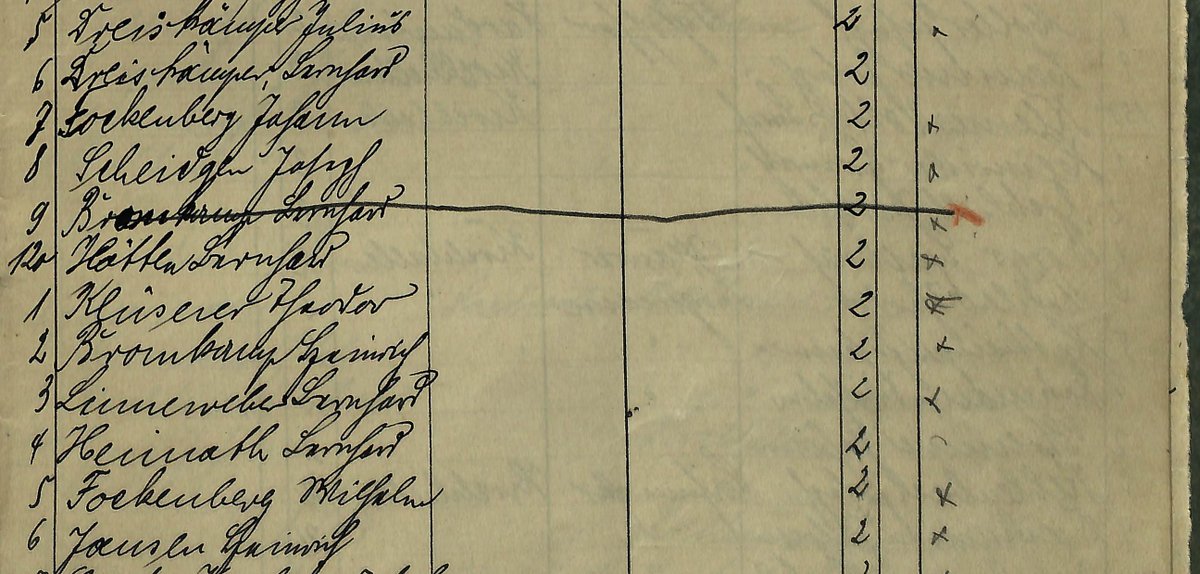 5 Dreiskämper Julius 2
6 Dreiskämper, Bernhard 2
7 Fockenberg Johann 2 x
8 Scheidgen Joseph 2 x
9 Bromkamp Bernhard 2 x
120 Hötten Bernhard 2 x
1 Klüsener Theodor 2
2 Bromkamp Heinrich 2 x
3 Linneweber Bernhard 2 x
4 Heinrath Bernhard 2
5 Fockenberg Wilhelm 2 x
6 Jansen Heinrich 2 x